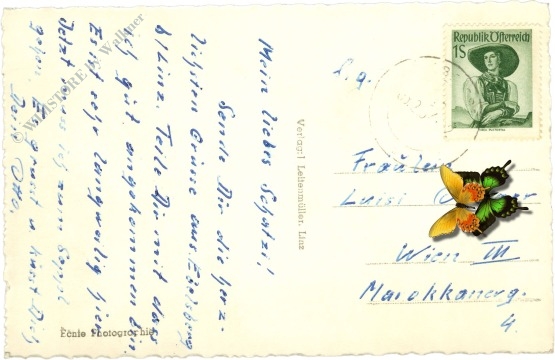 Mein liebes Schatzi!
Sende Dir die herz-
lichsten Grüsse aus
b/Linz. Teile Dir mit das
ich gut angekommen bin.
Es ist sehr langweilig hier
Jetzt muss ich zum
gehen. Es grüsst u küsst Dich
Dein Otto.
L. g.
Republik Österreich
1S
Fräulein
Luise
Wien III
Marokkanerg.
4.
Verlag: Leitenmüller, Linz
Echte Photographie
© WEBSTORE A. Wallner